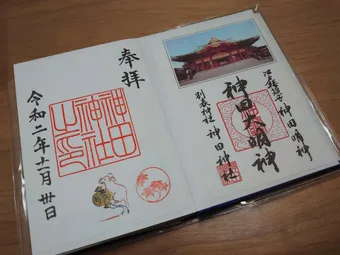 江戸総鎮守 神田明神
神田大明神
別表神社 神田神社
奉拝
神田神社之印
令和二年十一月廿日